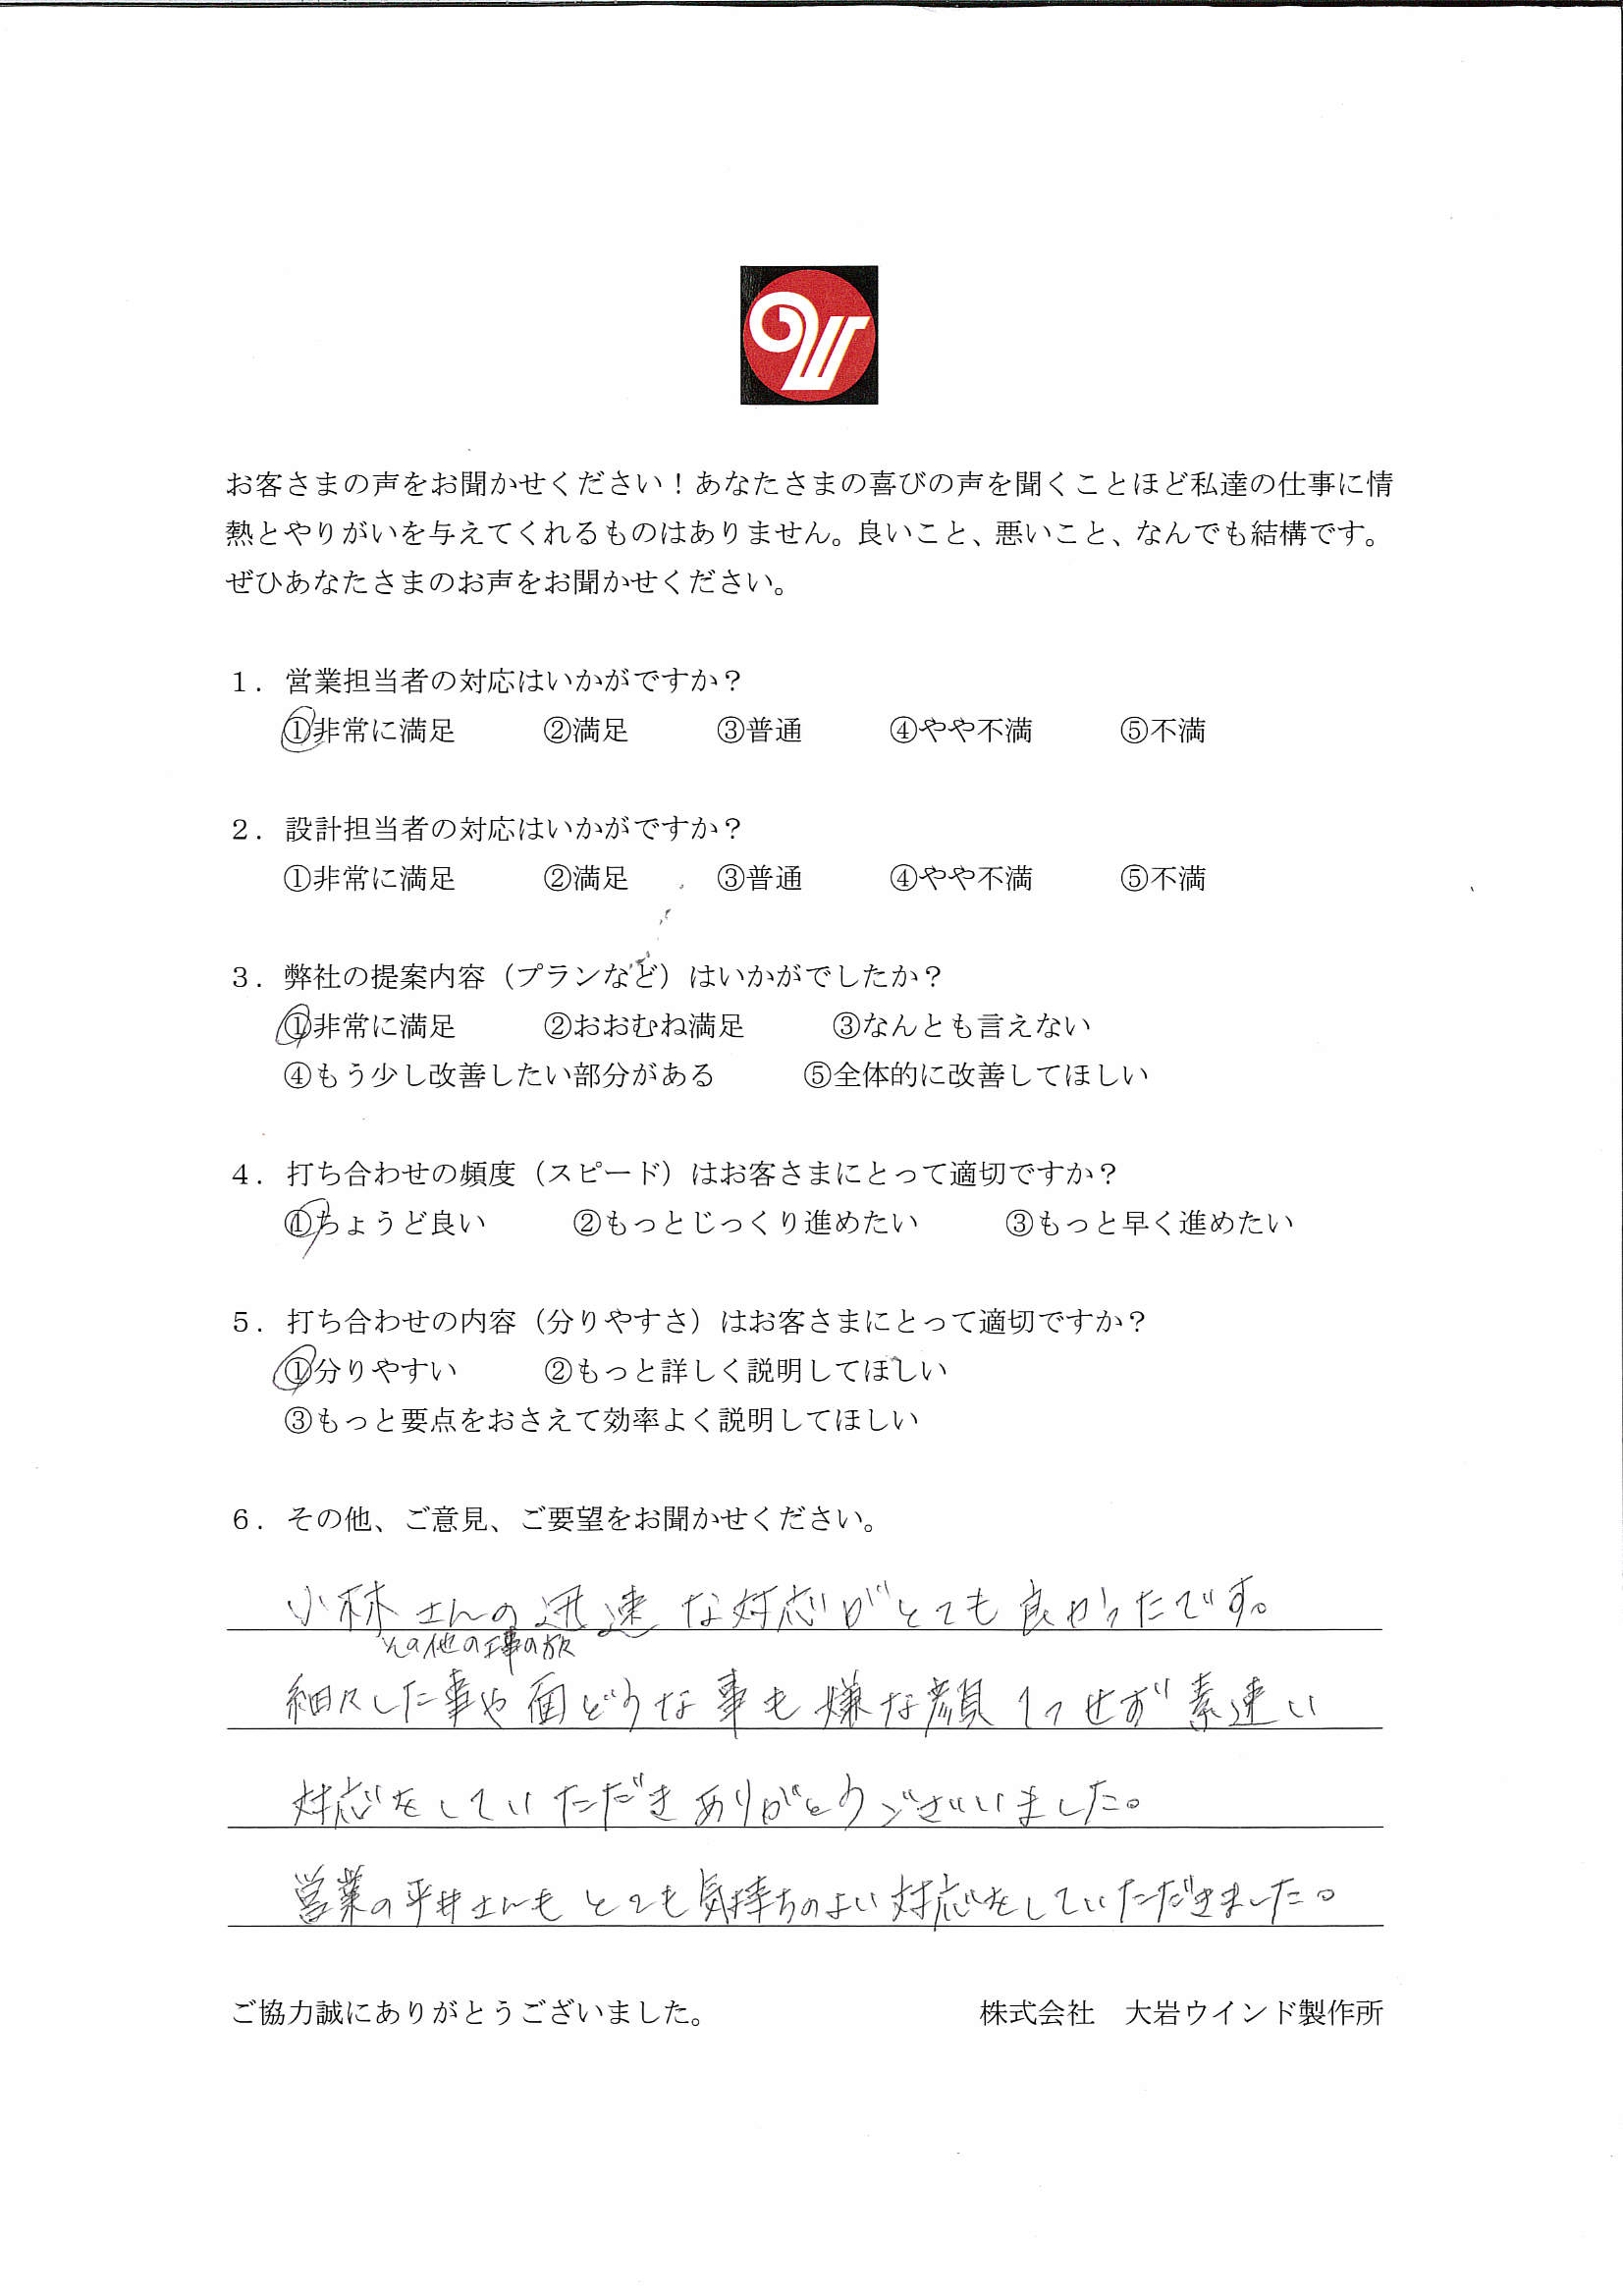 お客さまの声をお聞かせください！あなたさまの喜びの声を聞くことほど私達の仕事に情
熱とやりがいを与えてくれるものはありません。良いこと、悪いこと、なんでも結構です。
ぜひあなたさまのお声をお聞かせください。
１．営業担当者の対応はいかがですか？
①非常に満足　②満足　③普通　④やや不満　⑤不満
２．設計担当者の対応はいかがですか？
①非常に満足　②満足　③普通　④やや不満　⑤不満
３．弊社の提案内容（プランなど）はいかがでしたか？
①非常に満足　②おおむね満足　③なんとも言えない
④もう少し改善したい部分がある　⑤全体的に改善してほしい
４．打ち合わせの頻度（スピード）はお客さまにとって適切ですか？
①ちょうど良い　②もっとじっくり進めたい　③もっと早く進めたい
５．打ち合わせの内容（分りやすさ）はお客さまにとって適切ですか？
①分りやすい　②もっと詳しく説明してほしい
③もっと要点をおさえて効率よく説明してほしい
６．その他、ご意見、ご要望をお聞かせください。
小林さんの迅速な対応がとても良かったです。
その他の工事の方々
細々した事や面どうな事も嫌な顔1つせず素速い
対応をしていただきありがとうございました。
営業の平井さんもとても気持ちのよい対応をしていただきました。
ご協力誠にありがとうございました。　株式会社　大岩ウインド製作所